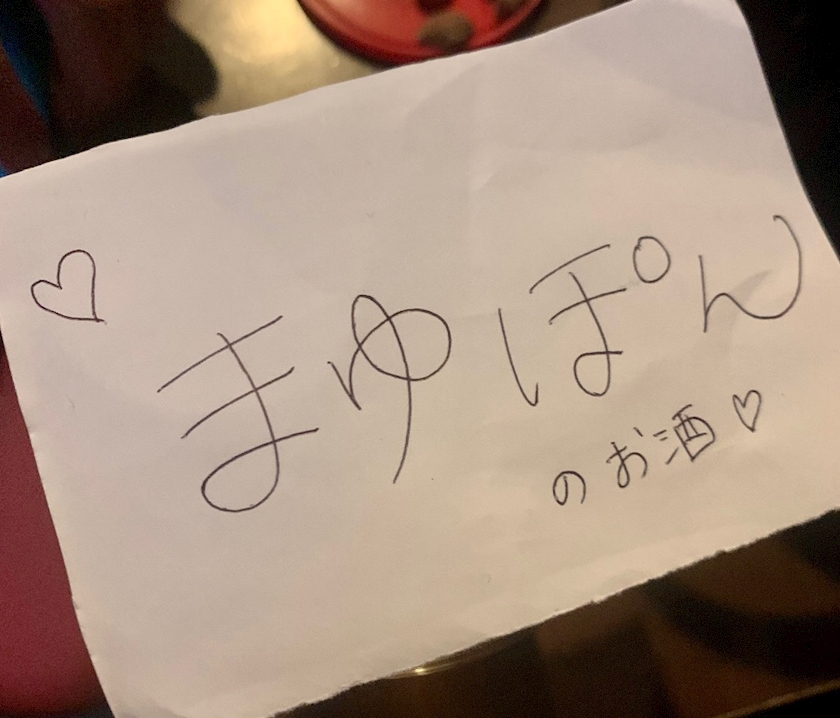 ♡ まゆぽん
のお酒♡